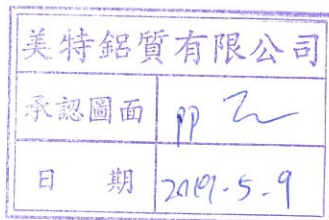 美特鋁質有限公司
承認圖面 pp
日 期 2019-5-9